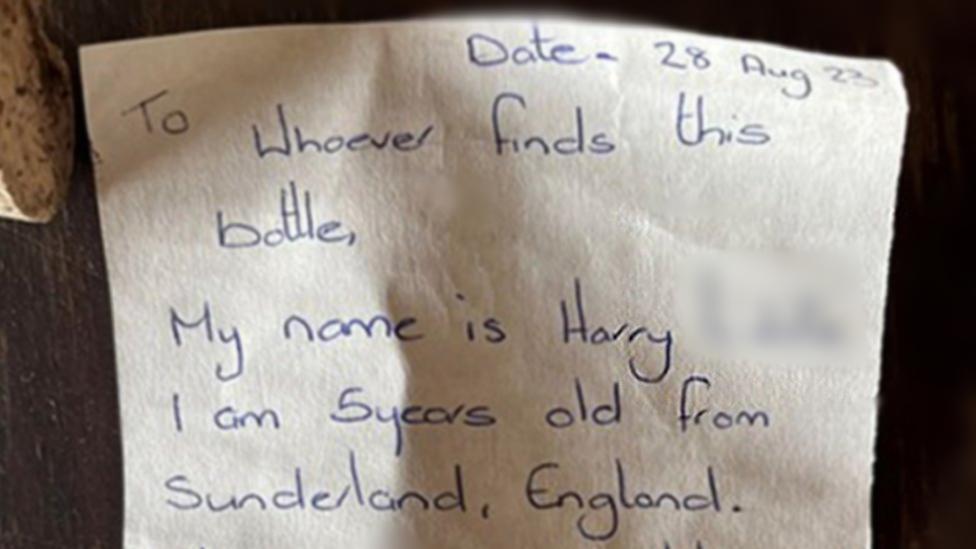 Date - 28 Aug 23
To
Whoever finds this
bottle,
My name is Harry
I am 5years old from
Sunderland, England.